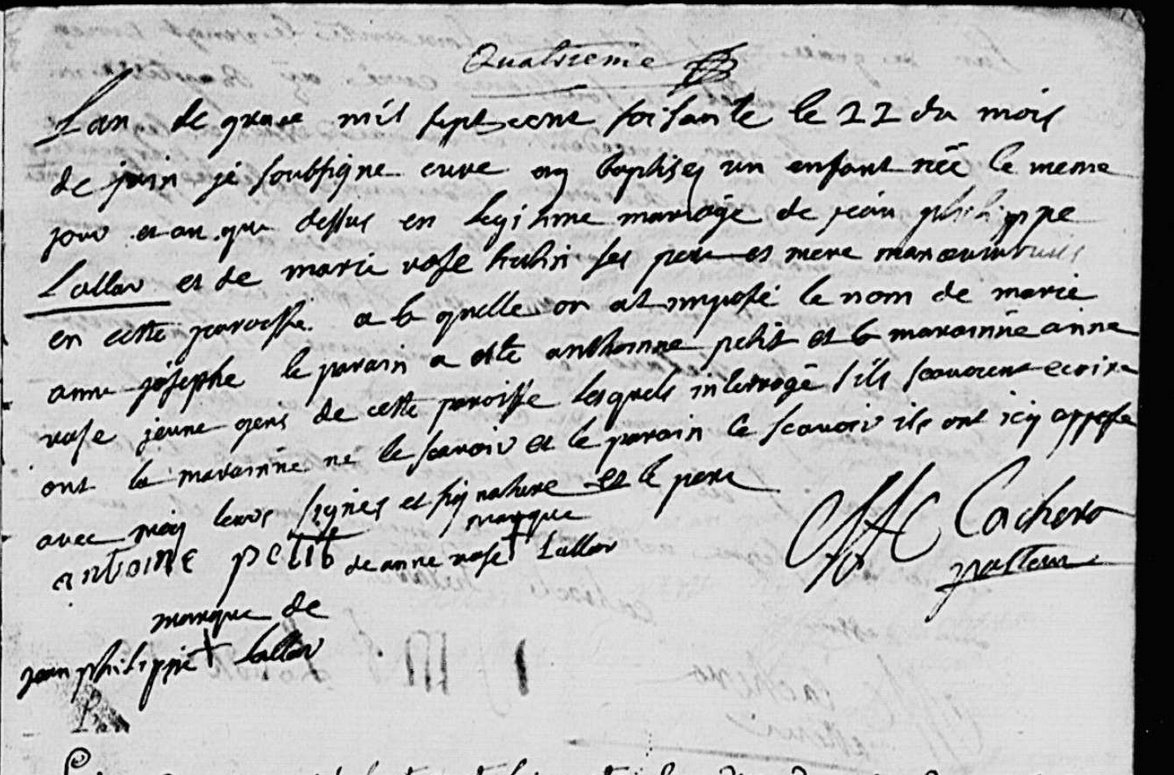 Quatrieme
Lan de grace mil sept cent soisante le 22 du mois
de juin je soubsigne cure ay baptisez un enfant née le meme
jour et an que dessus en legitime mariage de jean philippe
Lallor et de marie rose hulin ses pere et mere manoeuvriers
en cette paroisse. a la quelle on at imposé le nom de marie
anne josephe le parain a esté anthoinne petit et la marainne anne
rose jeune gens de cette paroisse lesquels interrogé s'ils scavoient ecrire
ont la marainne ne le scavoir et le parain le scavoir ils ont icy appose
avec moy leurs signes et signature et le pere
antoine petit marque
de anne rose Lallor
Cachero
pasteur
marque de
jean philippe lallor